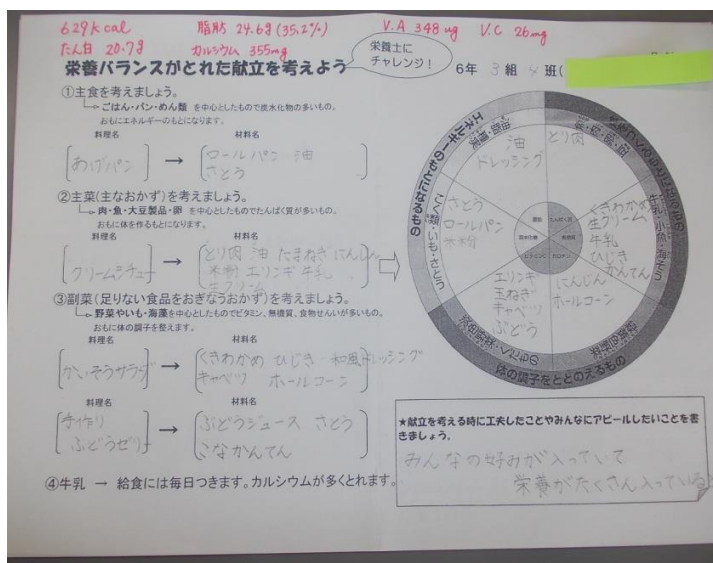 629kcal 脂肪 24.6g (35.2%) V.A 348ug V.C 26mg
たん白 20.7g カルシウム 355mg
栄養バランスがとれた献立を考えよう
栄養士に
チャレンジ!
6年 3組 4班(
①主食を考えましょう。
ごはん・パン・めん類 を中心としたもので炭水化物の多いもの。
おもにエネルギーのもとになります。
料理名 材料名
あげパン → ロールパン 油
さとう
②主菜(主なおかず)を考えましょう。
肉・魚・大豆製品・卵 を中心としたものでたんぱく質が多いもの。
おもに体を作るもとになります。
料理名 材料名
クリームシチュー → とり肉 油 たまねぎ にんじん
米粉 エリンギ 牛乳
生クリーム
③副菜(足りない食品をおぎなうおかず)を考えましょう。
野菜やいも・海藻を中心としたものでビタミン、無機質、食物せんいが多いもの。
おもに体の調子を整えます。
料理名 材料名
かいそうサラダ → くきわかめ ひじき 和風ドレッシング
キャベツ ホールコーン
料理名 材料名
手作り
ぶどうゼリー → ぶどうジュース さとう
こなかんてん
④牛乳 → 給食には毎日つきます。カルシウムが多くとれます。
エネルギーのもとになるもの
油
ドレッシング
とり肉
さとう
ロールパン
米粉
こく類・いも・さとう
くきわかめ
生クリーム
牛乳
ひじき
かんてん
牛乳・小魚・海そう
エリンギ
玉ねぎ
キャベツ
ぶどう
にんじん
ホールコーン
緑黄色野菜
体の調子をととのえるもの
★献立を考える時に工夫したことやみんなにアピールしたいことを書
きましょう。
みんなの好みが入っていて
栄養がたくさん入っている